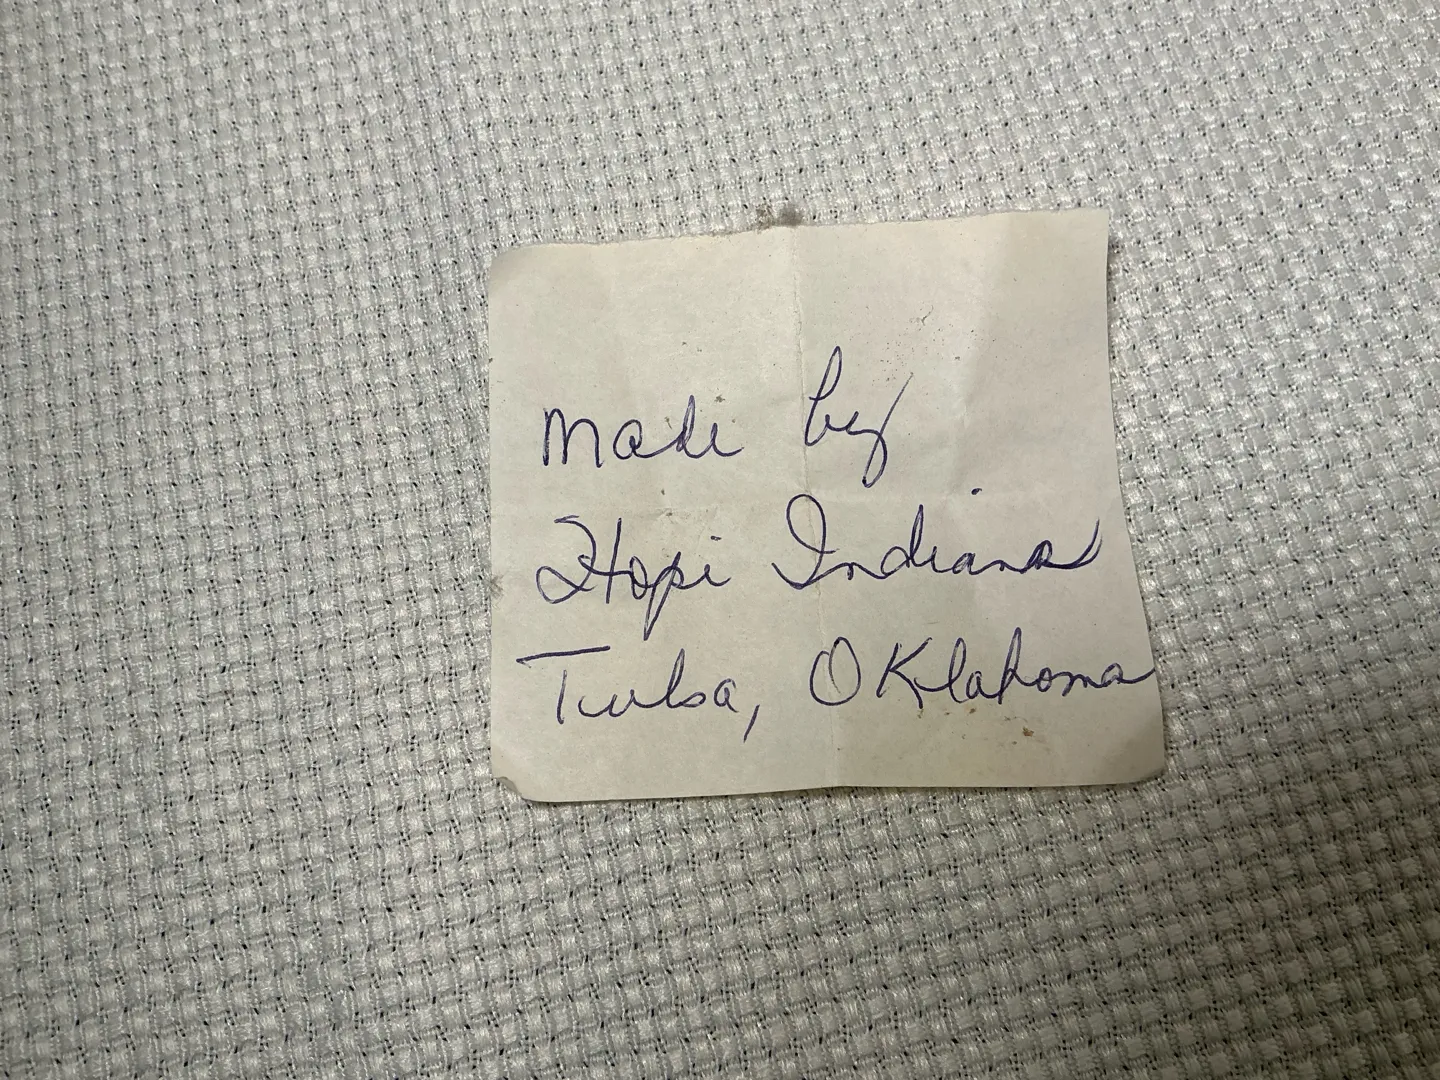 Made by
Hopi Indians
Tulsa, OKlahoma